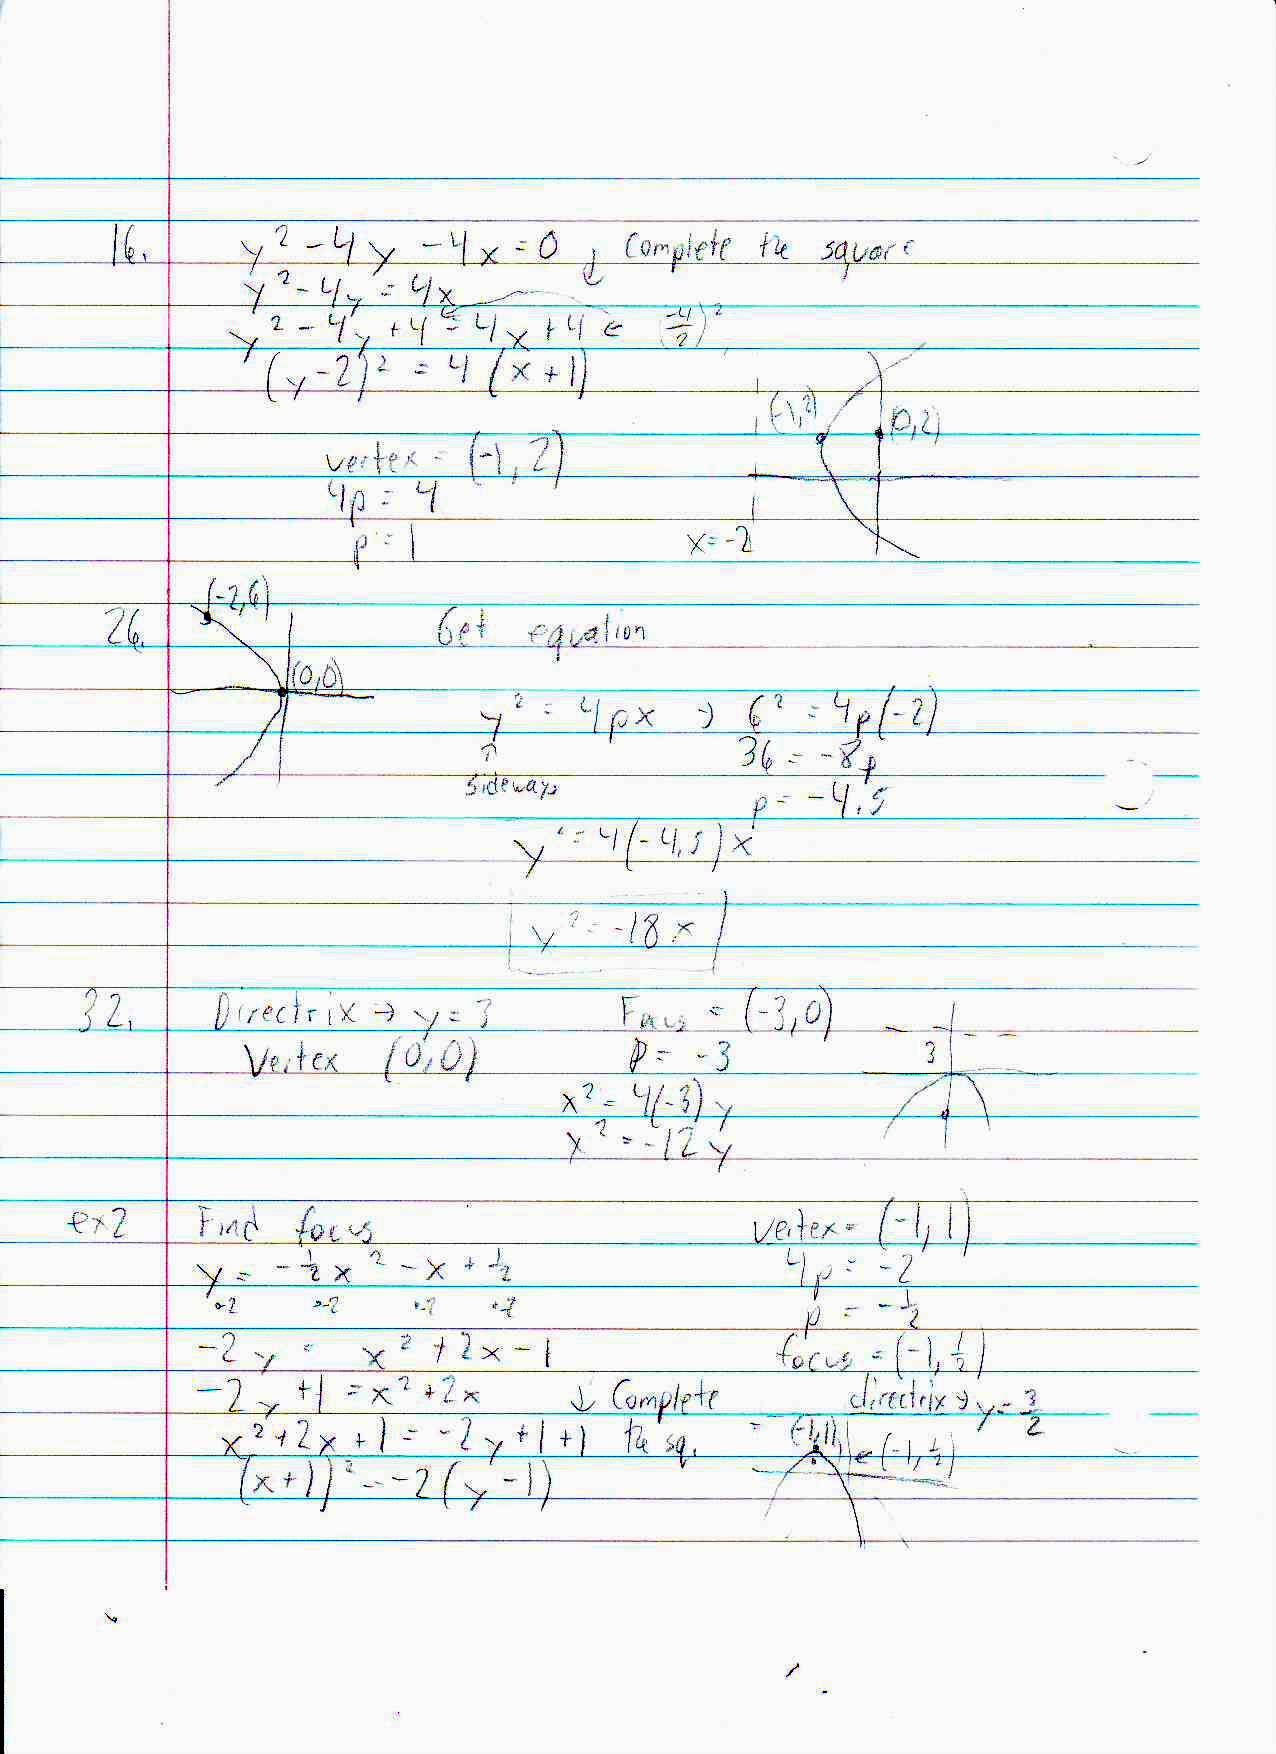 16. y² - 4y - 4x = 0 ↓ Complete the square
y² - 4y = 4x
y² - 4y + 4 = 4x + 4 ← (-4/2)²
(y - 2)² = 4 (x + 1)
(-1, 2) (0, 2)
vertex = (-1, 2)
4p = 4
p = 1
x = -2
26. (-2, 6) Get equation
(0, 0)
y² = 4px → 6² = 4p(-2)
↑ 36 = -8p
sideways p = -4.5
y² = 4(-4.5)x
y² = -18x
32. Directrix → y = 3 Focus = (-3, 0)
Vertex (0, 0) p = -3 3
x² = 4(-3)y
x² = -12y
ex2 Find focus vertex = (-1, 1)
y = -½x² - x + ½ 4p = -2
•-2 •-2 •-2 •-2 p = -½
-2y = x² + 2x - 1 focus = (-1, ½)
-2y + 1 = x² + 2x ↓ Complete directrix → y = 3/2
x² + 2x + 1 = -2y + 1 + 1 the sq. (-1, 1) ← (-1, ½)
(x + 1)² = -2(y - 1)